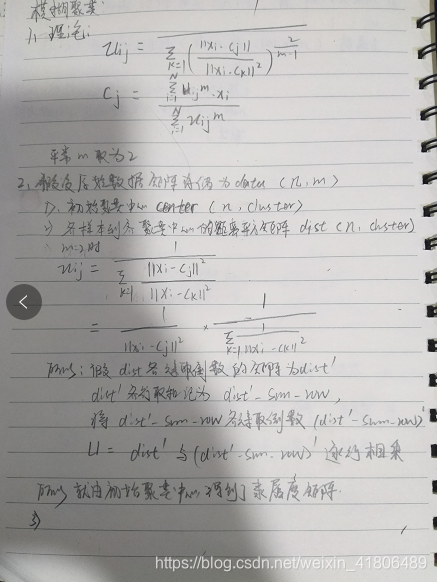 模糊聚类
1、理论:
1
uij = ─────
Σ k=1 ( ||xi-cj|| / ||xi-ck||² )^(2/(m-1))
cj = Σ i=1 N uij^m · xi / Σ i=1 N uij^m
平常 m 取为 2
2、假设原始数据矩阵 为 data (n, m)
1)、初始聚类中心 center (n, cluster)
2) 各样本到各聚类中心的距离平方矩阵 dist (n, cluster)
m=2时
uij = 1 / Σ k=1 ||xi-cj||² / ||xi-ck||²
= 1 / ||xi-cj||² * 1 / Σ k=1 1 / ||xi-ck||²
所以: 假设 dist 各元素取倒数的矩阵为 dist'
dist' 各行取和记为 dist'-sum-row,
将 dist'-sum-row 各元素取倒数 (dist'-sum-row)'
U = dist' 与 (dist'-sum-row)' 逐行相乘
所以 就由初始聚类中心得到了隶属度矩阵.
3)
https://blog.csdn.net/weixin_41806489